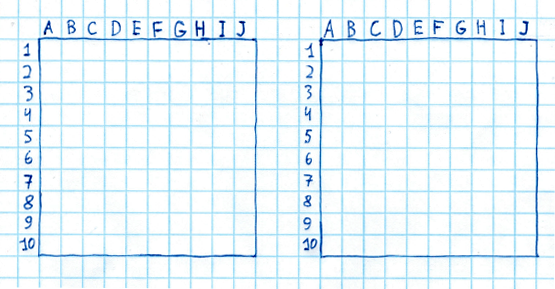 A B C D E F G H I J
1
2
3
4
5
6
7
8
9
10
A B C D E F G H I J
1
2
3
4
5
6
7
8
9
10